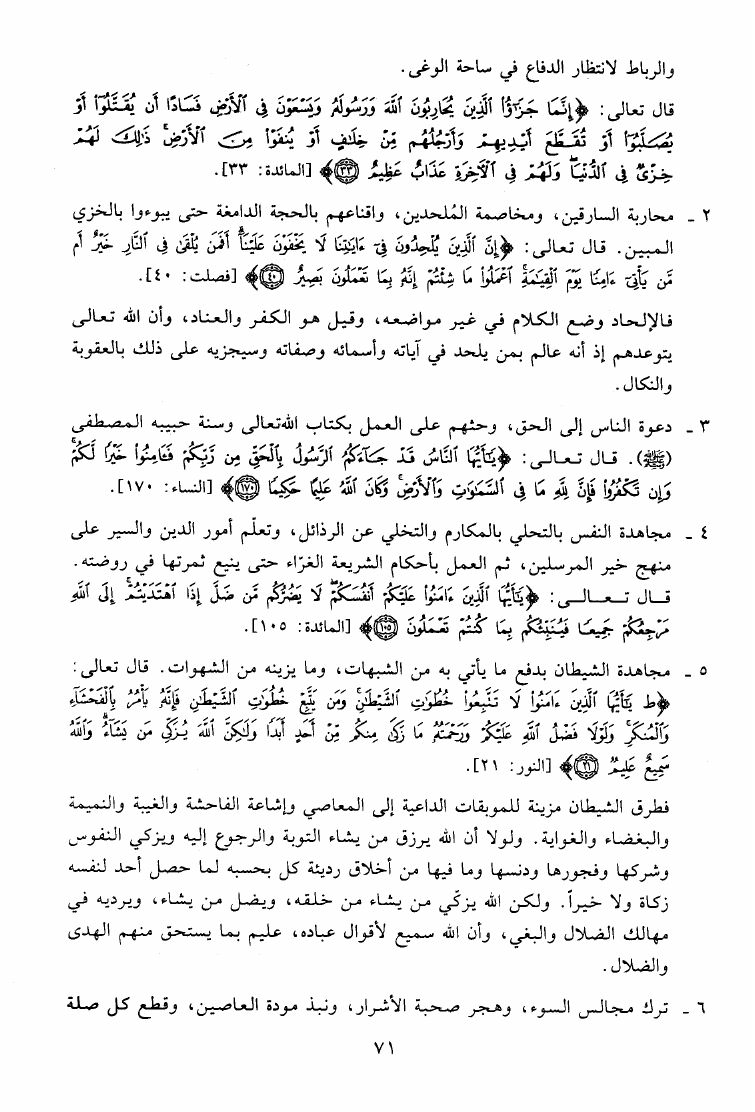 والرباط لانتظار الدفاع في ساحة الوغى.
قال تعالى: ﴿إِنَّمَا جَزَٰٓؤُا۟ ٱلَّذِينَ يُحَارِبُونَ ٱللَّهَ وَرَسُولَهُۥ وَيَسْعَوْنَ فِى ٱلْأَرْضِ فَسَادًا أَن يُقَتَّلُوٓا۟ أَوْ
يُصَلَّبُوٓا۟ أَوْ تُقَطَّعَ أَيْدِيهِمْ وَأَرْجُلُهُم مِّنْ خِلَٰفٍ أَوْ يُنفَوْا۟ مِنَ ٱلْأَرْضِ ذَٰلِكَ لَهُمْ
خِزْىٌ فِى ٱلدُّنْيَا وَلَهُمْ فِى ٱلْءَاخِرَةِ عَذَابٌ عَظِيمٌ ٣٣﴾ [المائدة: ٣٣].
٢ ـ محاربة السارقين، ومخاصمة المُلحدين، واقناعهم بالحجة الدامغة حتى يبوءوا بالخزي
المبين. قال تعالى: ﴿إِنَّ ٱلَّذِينَ يُلْحِدُونَ فِىٓ ءَايَٰتِنَا لَا يَخْفَوْنَ عَلَيْنَآ أَفَمَن يُلْقَىٰ فِى ٱلنَّارِ خَيْرٌ أَم
مَّن يَأْتِىٓ ءَامِنًا يَوْمَ ٱلْقِيَٰمَةِ ٱعْمَلُوا۟ مَا شِئْتُمْ إِنَّهُۥ بِمَا تَعْمَلُونَ بَصِيرٌ ٤٠﴾ [فصلت: ٤٠].
فالإلحاد وضع الكلام في غير مواضعه، وقيل هو الكفر والعناد، وأن الله تعالى
يتوعدهم إذ أنه عالم بمن يلحد في آياته وأسمائه وصفاته وسيجزيه على ذلك بالعقوبة
والنكال.
٣ ـ دعوة الناس إلى الحق، وحثهم على العمل بكتاب الله تعالى وسنة حبيبه المصطفى
(ﷺ). قال تعالى: ﴿يَٰٓأَيُّهَا ٱلنَّاسُ قَدْ جَآءَكُمُ ٱلرَّسُولُ بِٱلْحَقِّ مِن رَّبِّكُمْ فَـَٔامِنُوا۟ خَيْرًا لَّكُمْ
وَإِن تَكْفُرُوا۟ فَإِنَّ لِلَّهِ مَا فِى ٱلسَّمَٰوَٰتِ وَٱلْأَرْضِ وَكَانَ ٱللَّهُ عَلِيمًا حَكِيمًا ١٧٠﴾ [النساء: ١٧٠].
٤ ـ مجاهدة النفس بالتحلي بالمكارم والتخلي عن الرذائل، وتعلّم أمور الدين والسير على
منهج خير المرسلين، ثم العمل بأحكام الشريعة الغرّاء حتى ينبع ثمرتها في روضته.
قال تعالى: ﴿يَٰٓأَيُّهَا ٱلَّذِينَ ءَامَنُوا۟ عَلَيْكُمْ أَنفُسَكُمْ لَا يَضُرُّكُم مَّن ضَلَّ إِذَا ٱهْتَدَيْتُمْ إِلَى ٱللَّهِ
مَرْجِعُكُمْ جَمِيعًا فَيُنَبِّئُكُم بِمَا كُنتُمْ تَعْمَلُونَ ١٠٥﴾ [المائدة: ١٠٥].
٥ ـ مجاهدة الشيطان بدفع ما يأتي به من الشبهات، وما يزينه من الشهوات. قال تعالى:
﴿ط يَٰٓأَيُّهَا ٱلَّذِينَ ءَامَنُوا۟ لَا تَتَّبِعُوا۟ خُطُوَٰتِ ٱلشَّيْطَٰنِ وَمَن يَتَّبِعْ خُطُوَٰتِ ٱلشَّيْطَٰنِ فَإِنَّهُۥ يَأْمُرُ بِٱلْفَحْشَآءِ
وَٱلْمُنكَرِ وَلَوْلَا فَضْلُ ٱللَّهِ عَلَيْكُمْ وَرَحْمَتُهُۥ مَا زَكَىٰ مِنكُم مِّنْ أَحَدٍ أَبَدًا وَلَٰكِنَّ ٱللَّهَ يُزَكِّى مَن يَشَآءُ وَٱللَّهُ
سَمِيعٌ عَلِيمٌ ٢١﴾ [النور: ٢١].
فطرق الشيطان مزينة للموبقات الداعية إلى المعاصي وإشاعة الفاحشة والغيبة والنميمة
والبغضاء والغواية. ولولا أن الله يرزق من يشاء التوبة والرجوع إليه ويزكي النفوس
وشركها وفجورها ودنسها وما فيها من أخلاق رديئة كل بحسبه لما حصل أحد لنفسه
زكاة ولا خيراً. ولكن الله يزكّي من يشاء من خلقه، ويضل من يشاء، ويرديه في
مهالك الضلال والبغي، وأن الله سميع لأقوال عباده، عليم بما يستحق منهم الهدى
والضلال.
٦ ـ ترك مجالس السوء، وهجر صحبة الأشرار، ونبذ مودة العاصين، وقطع كل صلة
٧١